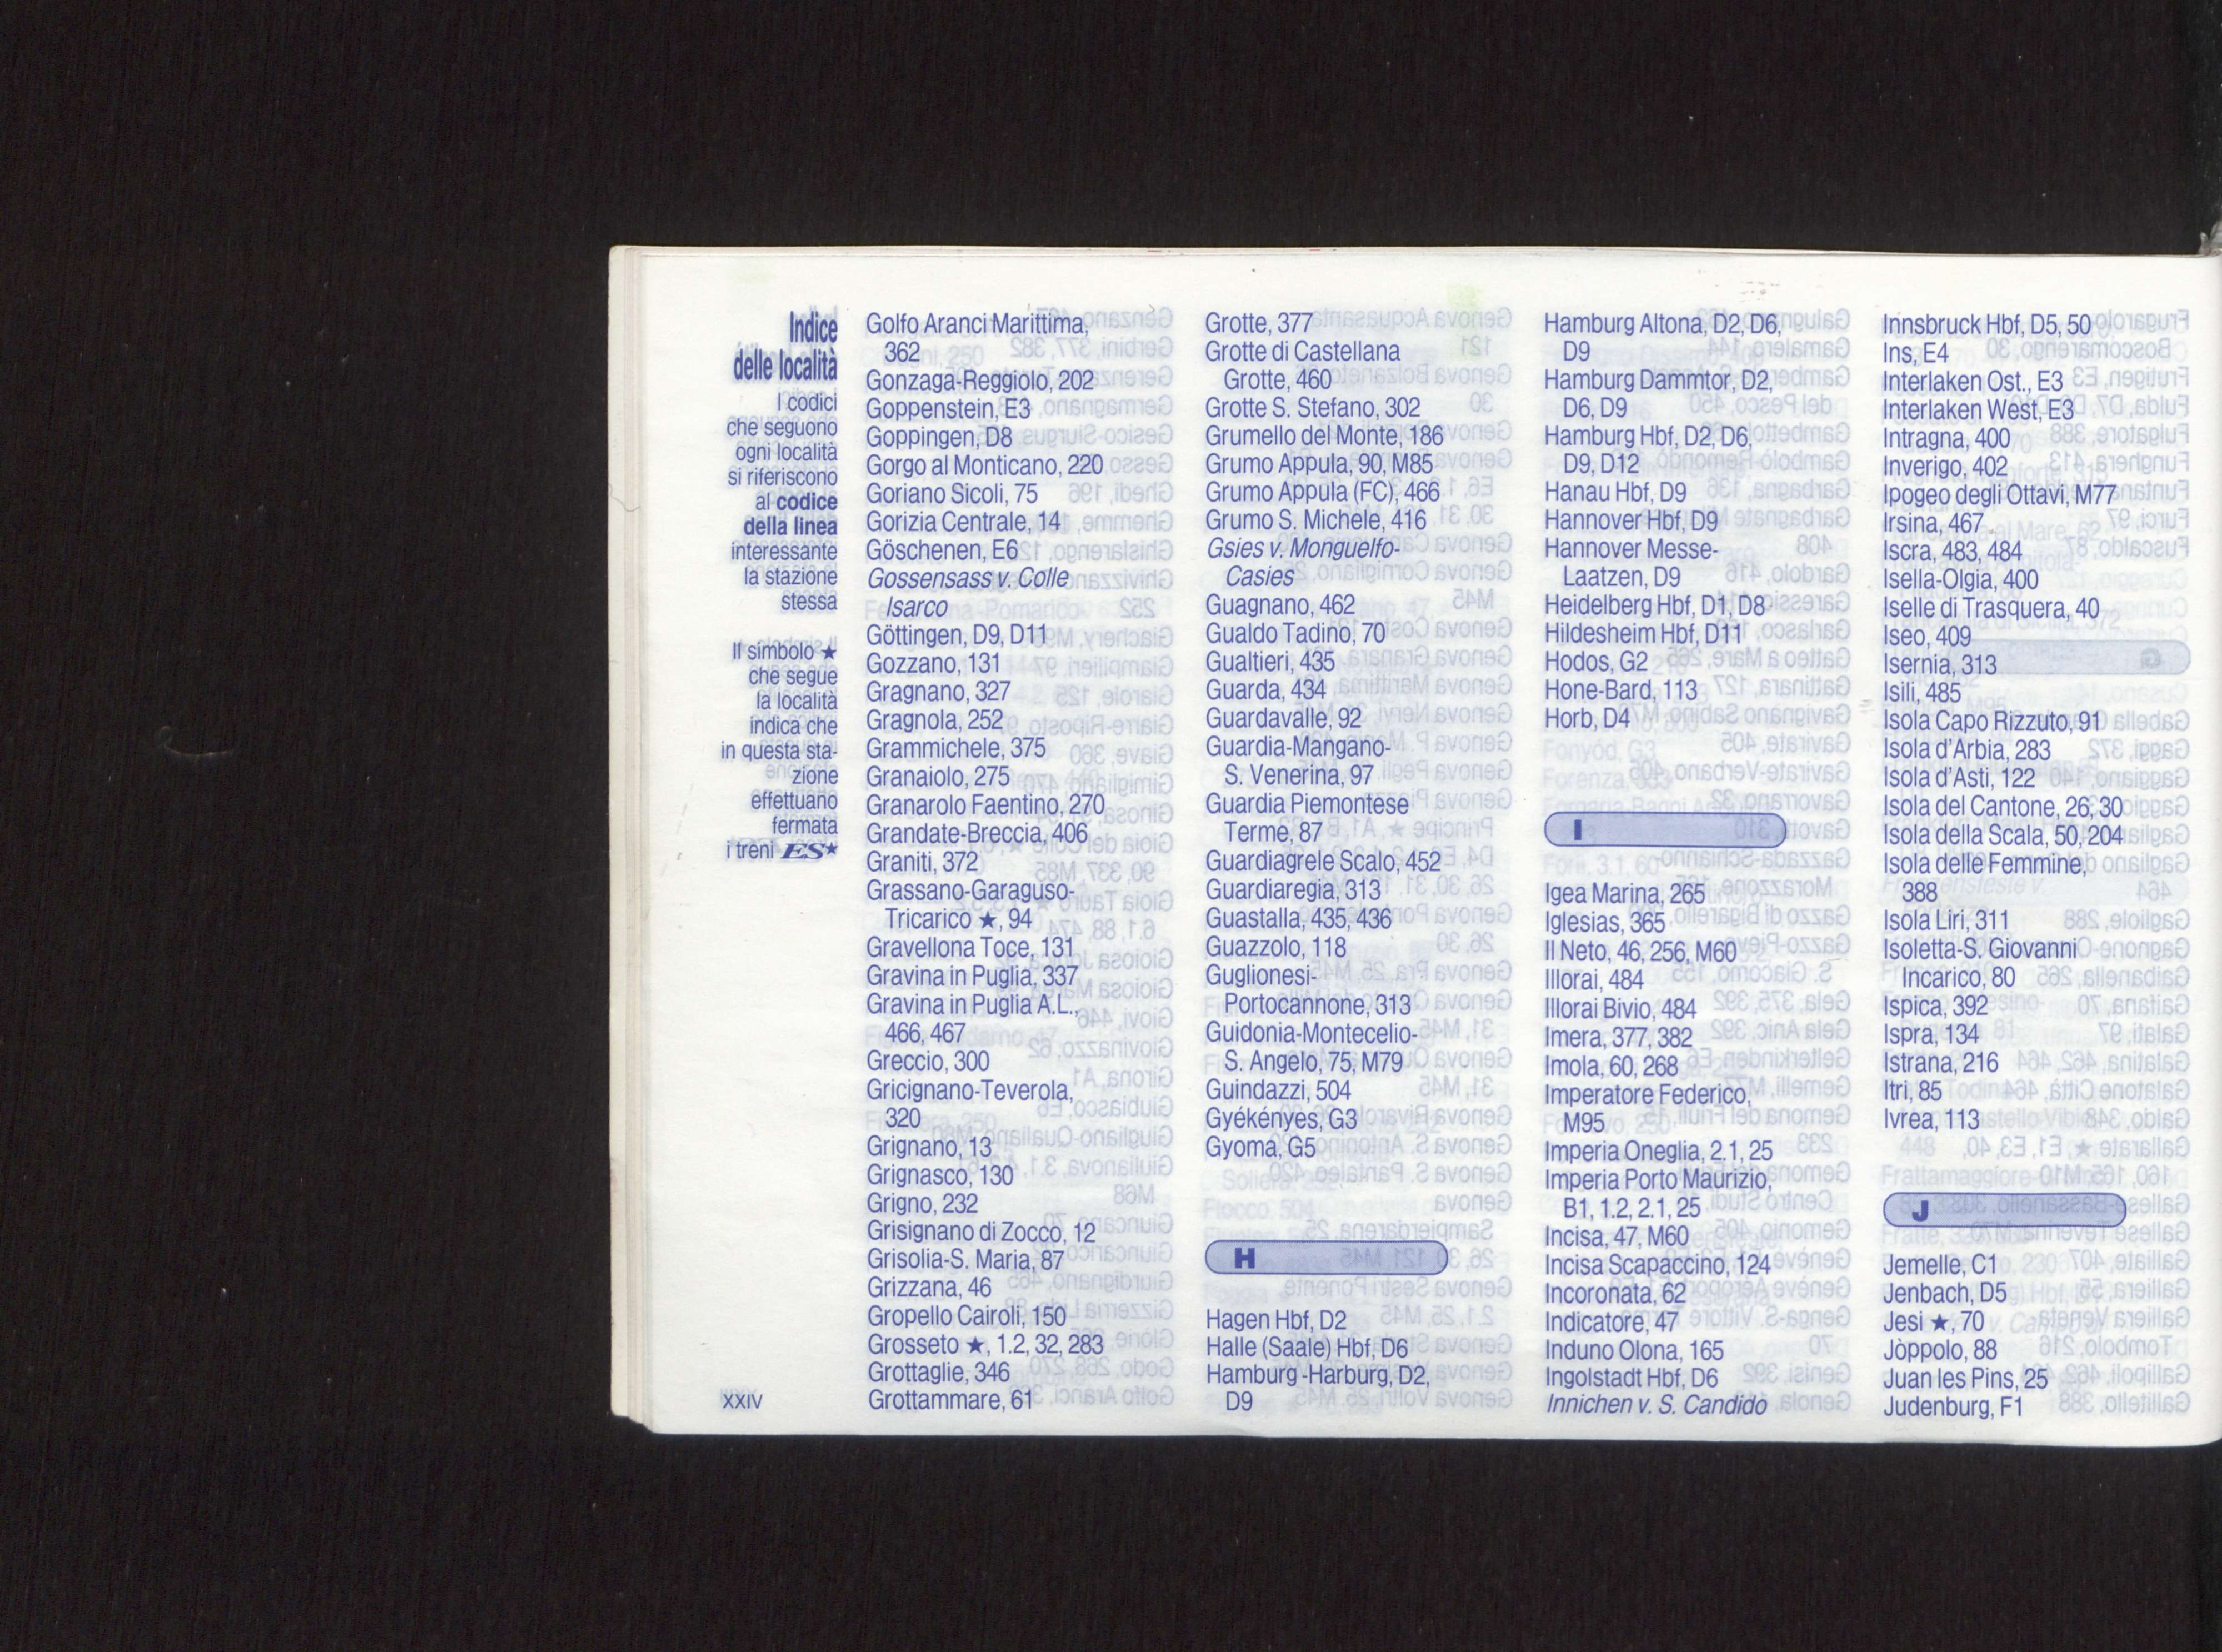 Indice
delle località
I codici
che seguono
ogni località
si riferiscono
al codice
della linea
interessante
la stazione
stessa
Il simbolo ★
che segue
la località
indica che
in questa sta-
zione
effettuano
fermata
i treni ES★
XXIV
Golfo Aranci Marittima,
362
Gonzaga-Reggiolo, 202
Goppenstein, E3
Goppingen, D8
Gorgo al Monticano, 220
Goriano Sicoli, 75
Gorizia Centrale, 14
Göschenen, E6
Gossensass v. Colle
Isarco
Göttingen, D9, D11
Gozzano, 131
Gragnano, 327
Gragnola, 252
Grammichele, 375
Granaiolo, 275
Granarolo Faentino, 270
Grandate-Breccia, 406
Graniti, 372
Grassano-Garaguso-
Tricarico ★, 94
Gravellona Toce, 131
Gravina in Puglia, 337
Gravina in Puglia A.L.,
466, 467
Greccio, 300
Gricignano-Teverola,
320
Grignano, 13
Grignasco, 130
Grigno, 232
Grisignano di Zocco, 12
Grisolia-S. Maria, 87
Grizzana, 46
Gropello Cairoli, 150
Grosseto ★, 1.2, 32, 283
Grottaglie, 346
Grottammare, 61
Grotte, 377
Grotte di Castellana
Grotte, 460
Grotte S. Stefano, 302
Grumello del Monte, 186
Grumo Appula, 90, M85
Grumo Appula (FC), 466
Grumo S. Michele, 416
Gsies v. Monguelfo-
Casies
Guagnano, 462
Gualdo Tadino, 70
Gualtieri, 435
Guarda, 434
Guardavalle, 92
Guardia-Mangano-
S. Venerina, 97
Guardia Piemontese
Terme, 87
Guardiagrele Scalo, 452
Guardiaregia, 313
Guastalla, 435, 436
Guazzolo, 118
Guglionesi-
Portocannone, 313
Guidonia-Montecelio-
S. Angelo, 75, M79
Guindazzi, 504
Gyékényes, G3
Gyoma, G5
H
Hagen Hbf, D2
Halle (Saale) Hbf, D6
Hamburg -Harburg, D2,
D9
Hamburg Altona, D2, D6,
D9
Hamburg Dammtor, D2,
D6, D9
Hamburg Hbf, D2, D6,
D9, D12
Hanau Hbf, D9
Hannover Hbf, D9
Hannover Messe-
Laatzen, D9
Heidelberg Hbf, D1, D8
Hildesheim Hbf, D11
Hodos, G2
Hone-Bard, 113
Horb, D4
I
Igea Marina, 265
Iglesias, 365
Il Neto, 46, 256, M60
Illorai, 484
Illorai Bivio, 484
Imera, 377, 382
Imola, 60, 268
Imperatore Federico,
M95
Imperia Oneglia, 2.1, 25
Imperia Porto Maurizio,
B1, 1.2, 2.1, 25
Incisa, 47, M60
Incisa Scapaccino, 124
Incoronata, 62
Indicatore, 47
Induno Olona, 165
Ingolstadt Hbf, D6
Innichen v. S. Candido
Innsbruck Hbf, D5, 50
Ins, E4
Interlaken Ost., E3
Interlaken West, E3
Intragna, 400
Inverigo, 402
Ipogeo degli Ottavi, M77
Irsina, 467
Iscra, 483, 484
Isella-Olgia, 400
Iselle di Trasquera, 40
Iseo, 409
Isernia, 313
Isili, 485
Isola Capo Rizzuto, 91
Isola d'Arbia, 283
Isola d'Asti, 122
Isola del Cantone, 26, 30
Isola della Scala, 50, 204
Isola delle Femmine,
388
Isola Liri, 311
Isoletta-S. Giovanni
Incarico, 80
Ispica, 392
Ispra, 134
Istrana, 216
Itri, 85
Ivrea, 113
J
Jemelle, C1
Jenbach, D5
Jesi ★, 70
Jòppolo, 88
Juan les Pins, 25
Judenburg, F1